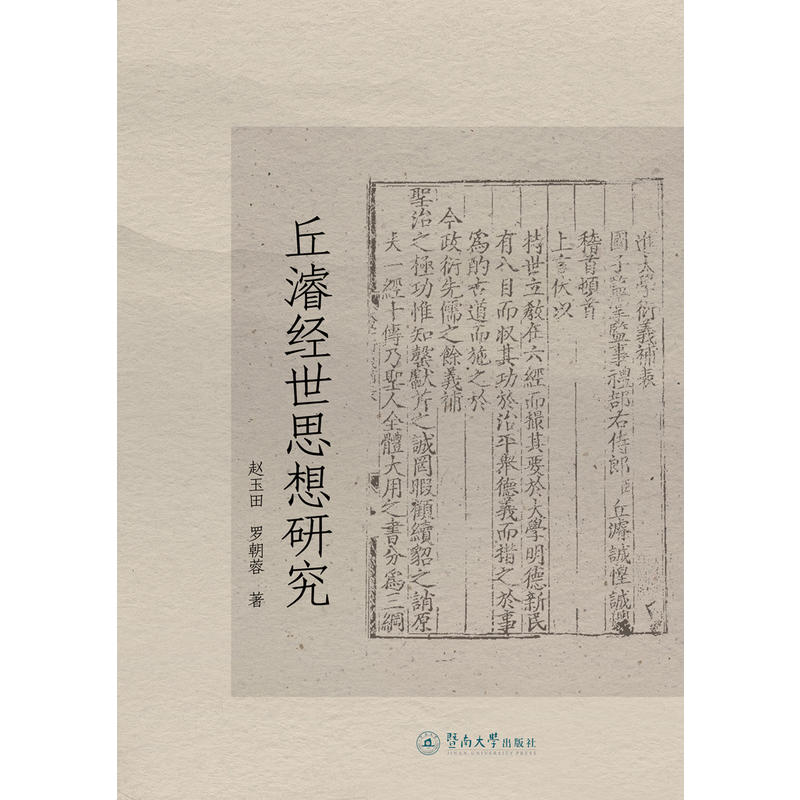 丘濬经世思想研究
赵玉田 罗朝蓉 著
進大學衍義補表
國子監掌監事禮部右侍郎臣丘濬誠惶誠懼
稽首頓首
上言伏以
持世立教在六經而撮其要於大學明德新民
有八目而収其功於治平舉德義而措之於事
為酌古道而施之於
今政衍先儒之餘義補
聖治之極功惟知罄獻芹之誠罔暇顧續貂之誚原
夫一經十傳乃聖人全體大用之書分為三綱
暨南大学出版社
JINAN UNIVERSITY PRESS